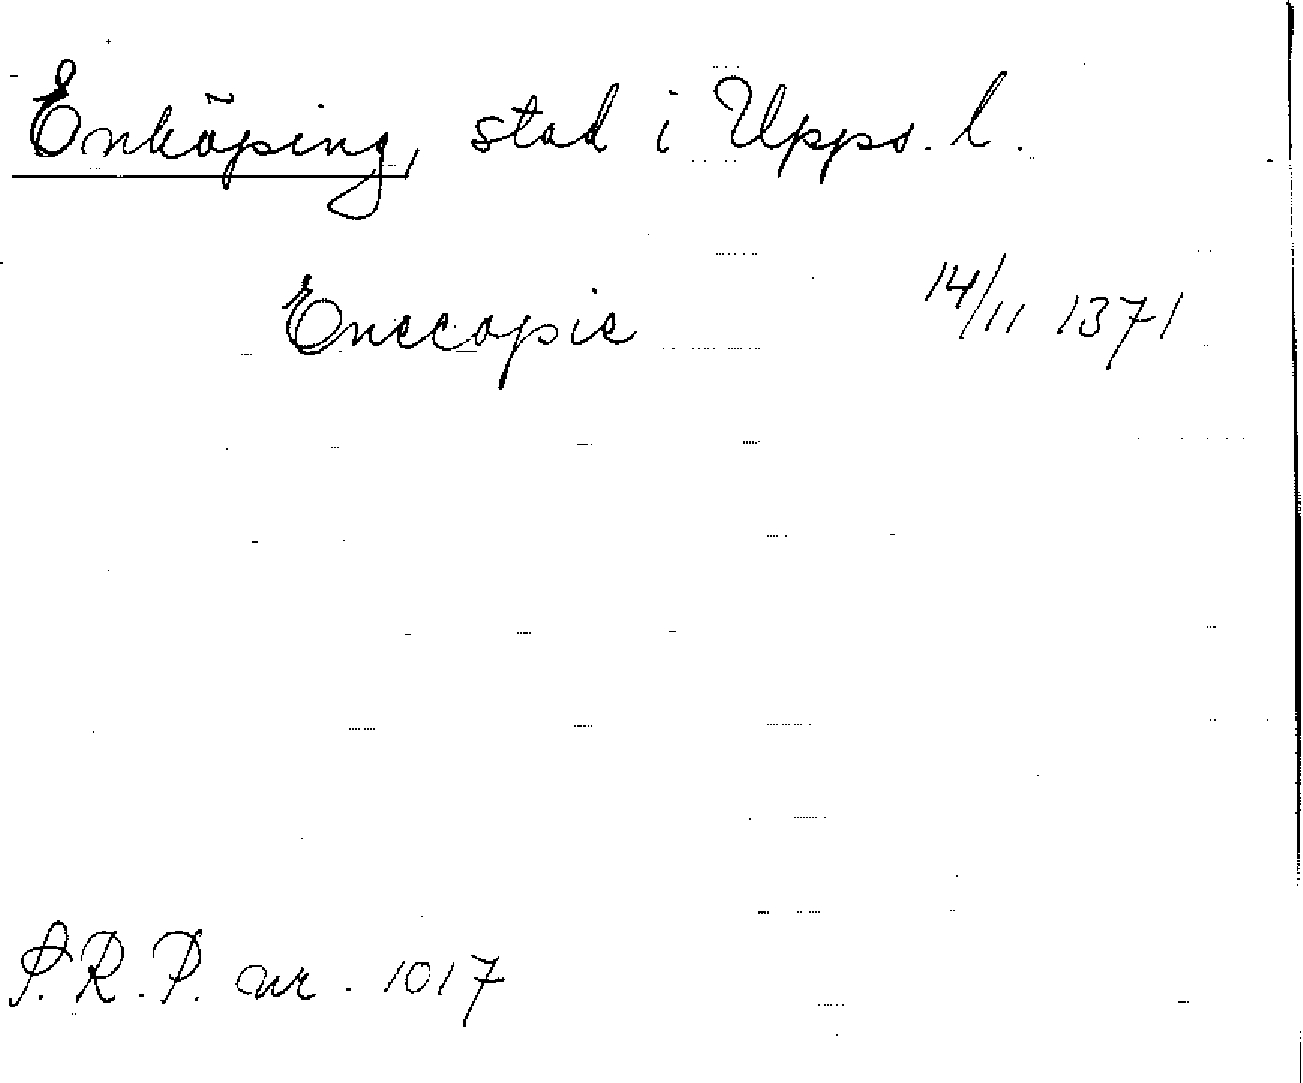 Enköping, stad i Upps. l.
Enccopie 14/11 1371
S.R.P. nr. 1017